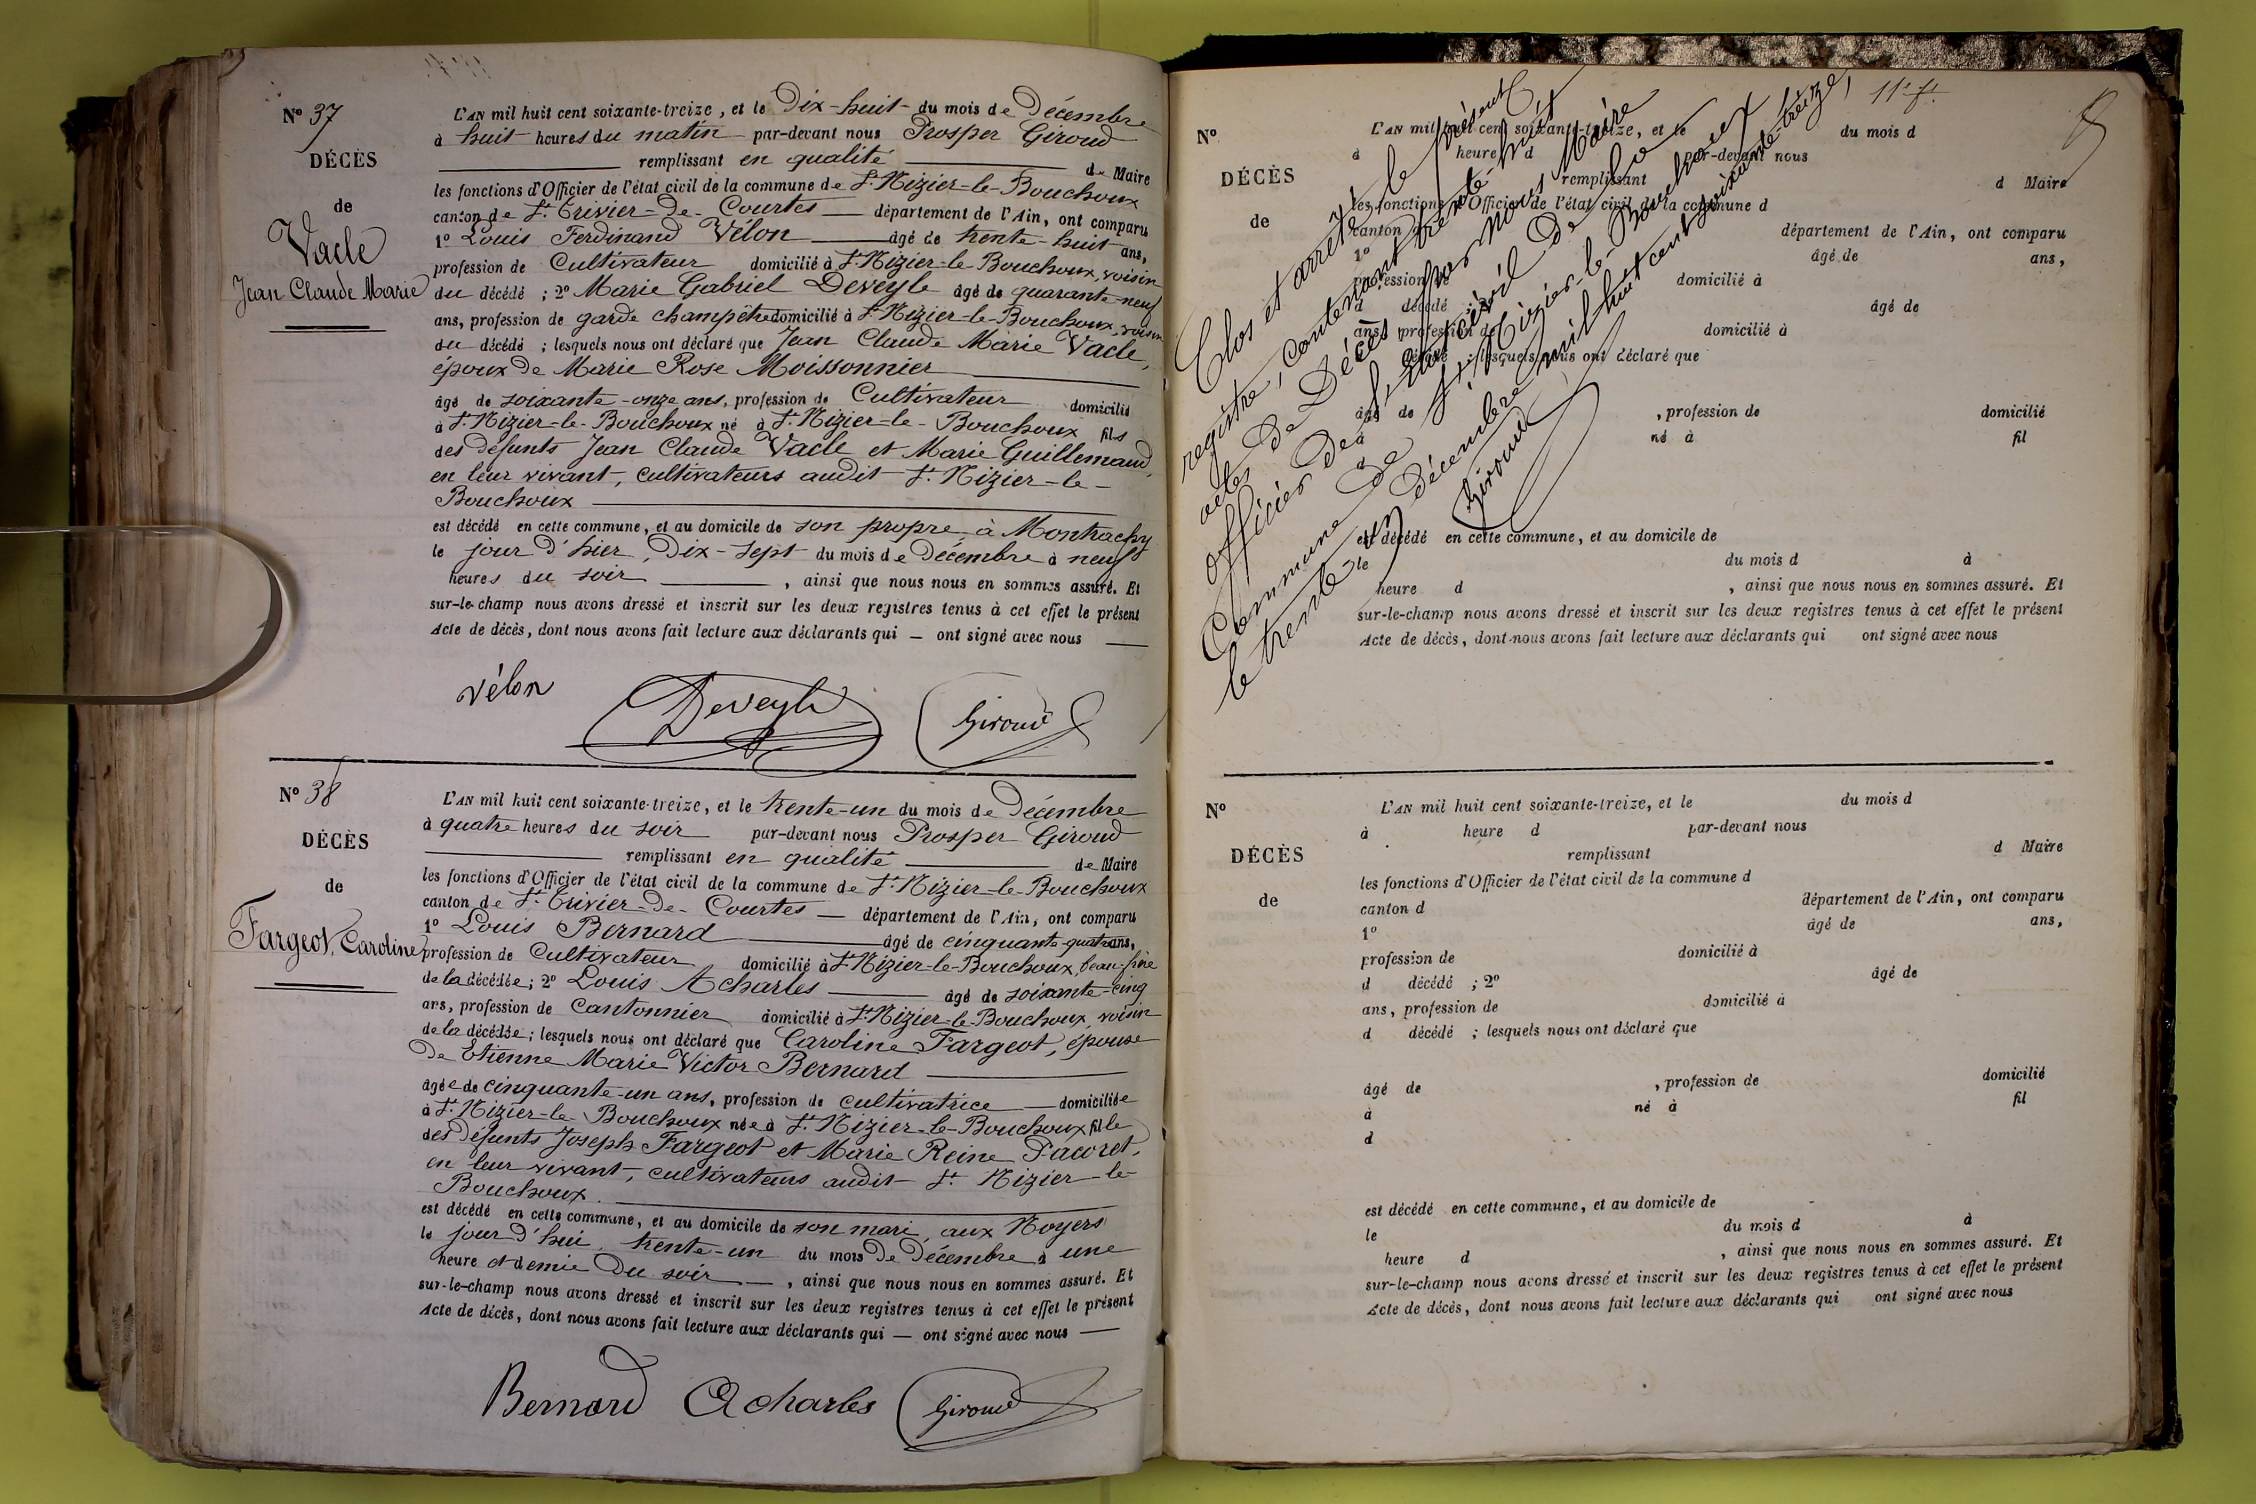 N° 37
DÉCÈS
de
Vacle
Jean Claude Marie
L'AN mil huit cent soixante-treize, et le Dix-huit du mois de Décembre
à huit heures du matin par-devant nous Prosper Giroud
remplissant en qualité de Maire
les fonctions d'Officier de l'état civil de la commune de St. Nizier-le-Bouchoux
canton de St. Trivier-de-Courtes département de l'Ain, ont comparu
1° Louis Ferdinand Vélon âgé de trente-huit ans,
profession de Cultivateur domicilié à St. Nizier-le-Bouchoux, voisin
du décédé ; 2° Marie Gabriel Deveyle âgé de quarante-neuf
ans, profession de garde champêtre domicilié à St. Nizier-le-Bouchoux, voisin
du décédé ; lesquels nous ont déclaré que Jean Claude Marie Vacle,
époux de Marie Rose Moissonnier
âgé de soixante-onze ans, profession de Cultivateur domicilié
à St. Nizier-le-Bouchoux né à St. Nizier-le-Bouchoux fils
des défunts Jean Claude Vacle et Marie Guillemaud,
en leur vivant, cultivateurs audit St. Nizier-le-
Bouchoux
est décédé en cette commune, et au domicile de son propre à Montrachy
le jour d'hier, Dix-sept du mois de Décembre à neuf
heures du soir, ainsi que nous nous en sommes assuré. Et
sur-le-champ nous avons dressé et inscrit sur les deux registres tenus à cet effet le présent
Acte de décès, dont nous avons fait lecture aux déclarants qui — ont signé avec nous —
Vélon Deveyle Giroud
N° 38
DÉCÈS
de
Fargeot, Caroline
L'AN mil huit cent soixante-treize, et le trente-un du mois de Décembre
à quatre heures du soir par-devant nous Prosper Giroud
remplissant en qualité de Maire
les fonctions d'Officier de l'état civil de la commune de St. Nizier-le-Bouchoux
canton de St. Trivier-de-Courtes — département de l'Ain, ont comparu
1° Louis Bernard âgé de cinquante-quatre ans,
profession de Cultivateur domicilié à St. Nizier-le-Bouchoux, beau-frère
de la décédée ; 2° Louis Acharles âgé de soixante-cinq
ans, profession de Cantonnier domicilié à St. Nizier-le-Bouchoux, voisin
de la décédée ; lesquels nous ont déclaré que Caroline Fargeot, épouse
de Etienne Marie Victor Bernard
âgée de cinquante-un ans, profession de cultivatrice — domiciliée
à St. Nizier-le-Bouchoux née à St. Nizier-le-Bouchoux fille
des défunts Joseph Fargeot et Marie Reine Pacoret,
en leur vivant, cultivateurs audit St. Nizier-le-
Bouchoux.
est décédé en cette commune, et au domicile de son mari, aux Noyers
le jour d'hui, trente-un du mois De Décembre à une
heure et demie du soir —, ainsi que nous nous en sommes assuré. Et
sur-le-champ nous avons dressé et inscrit sur les deux registres tenus à cet effet le présent
Acte de décès, dont nous avons fait lecture aux déclarants qui — ont signé avec nous —
Bernard Acharles Giroud
11e f.
Clos et arrêté le présent
registre, contenant trente-huit
actes de Décès par nous Maire
officier de l'état civil de la
Commune de St. Nizier-le-Bouchoux
le trente-un décembre mil huit cent soixante-treize,
Giroud
N°
DÉCÈS
de
L'AN mil huit cent soixante-treize, et le du mois d
à heure d par-devant nous
remplissant d Maire
les fonctions d'Officier de l'état civil de la commune d
canton d département de l'Ain, ont comparu
1° âgé de ans,
profession de domicilié à
d décédé ; 2° âgé de
ans, profession de domicilié à
d décédé ; lesquels nous ont déclaré que
âgé de , profession de domicilié
à né à fil
d
est décédé en cette commune, et au domicile de
le du mois d à
heure d , ainsi que nous nous en sommes assuré. Et
sur-le-champ nous avons dressé et inscrit sur les deux registres tenus à cet effet le présent
Acte de décès, dont nous avons fait lecture aux déclarants qui ont signé avec nous
N°
DÉCÈS
de
L'AN mil huit cent soixante-treize, et le du mois d
à heure d par-devant nous
remplissant d Maire
les fonctions d'Officier de l'état civil de la commune d
canton d département de l'Ain, ont comparu
1° âgé de ans,
profession de domicilié à
d décédé ; 2° âgé de
ans, profession de domicilié à
d décédé ; lesquels nous ont déclaré que
âgé de , profession de domicilié
à né à fil
d
est décédé en cette commune, et au domicile de
le du mois d à
heure d , ainsi que nous nous en sommes assuré. Et
sur-le-champ nous avons dressé et inscrit sur les deux registres tenus à cet effet le présent
Acte de décès, dont nous avons fait lecture aux déclarants qui ont signé avec nous